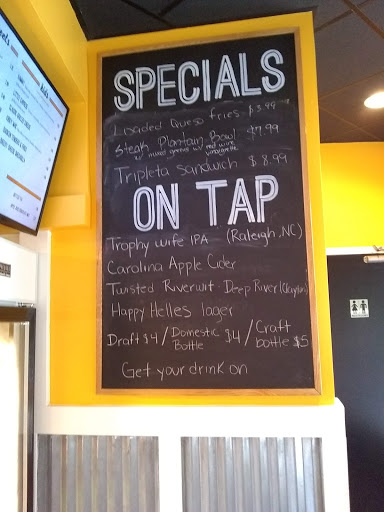 SPECIALS
Loaded Queso fries $5.99
Steak Plantain Bowl $7.99
w/ mixed greens w/ red wine vinaigrette
Tripleta Sandwich $8.99
ON TAP
Trophy wife IPA (Raleigh, NC)
Carolina Apple Cider
Twisted Riverwit - Deep River (Clayton)
Happy Helles lager
Draft $4 / Domestic Bottle $4 / Craft bottle $5
Get your drink on